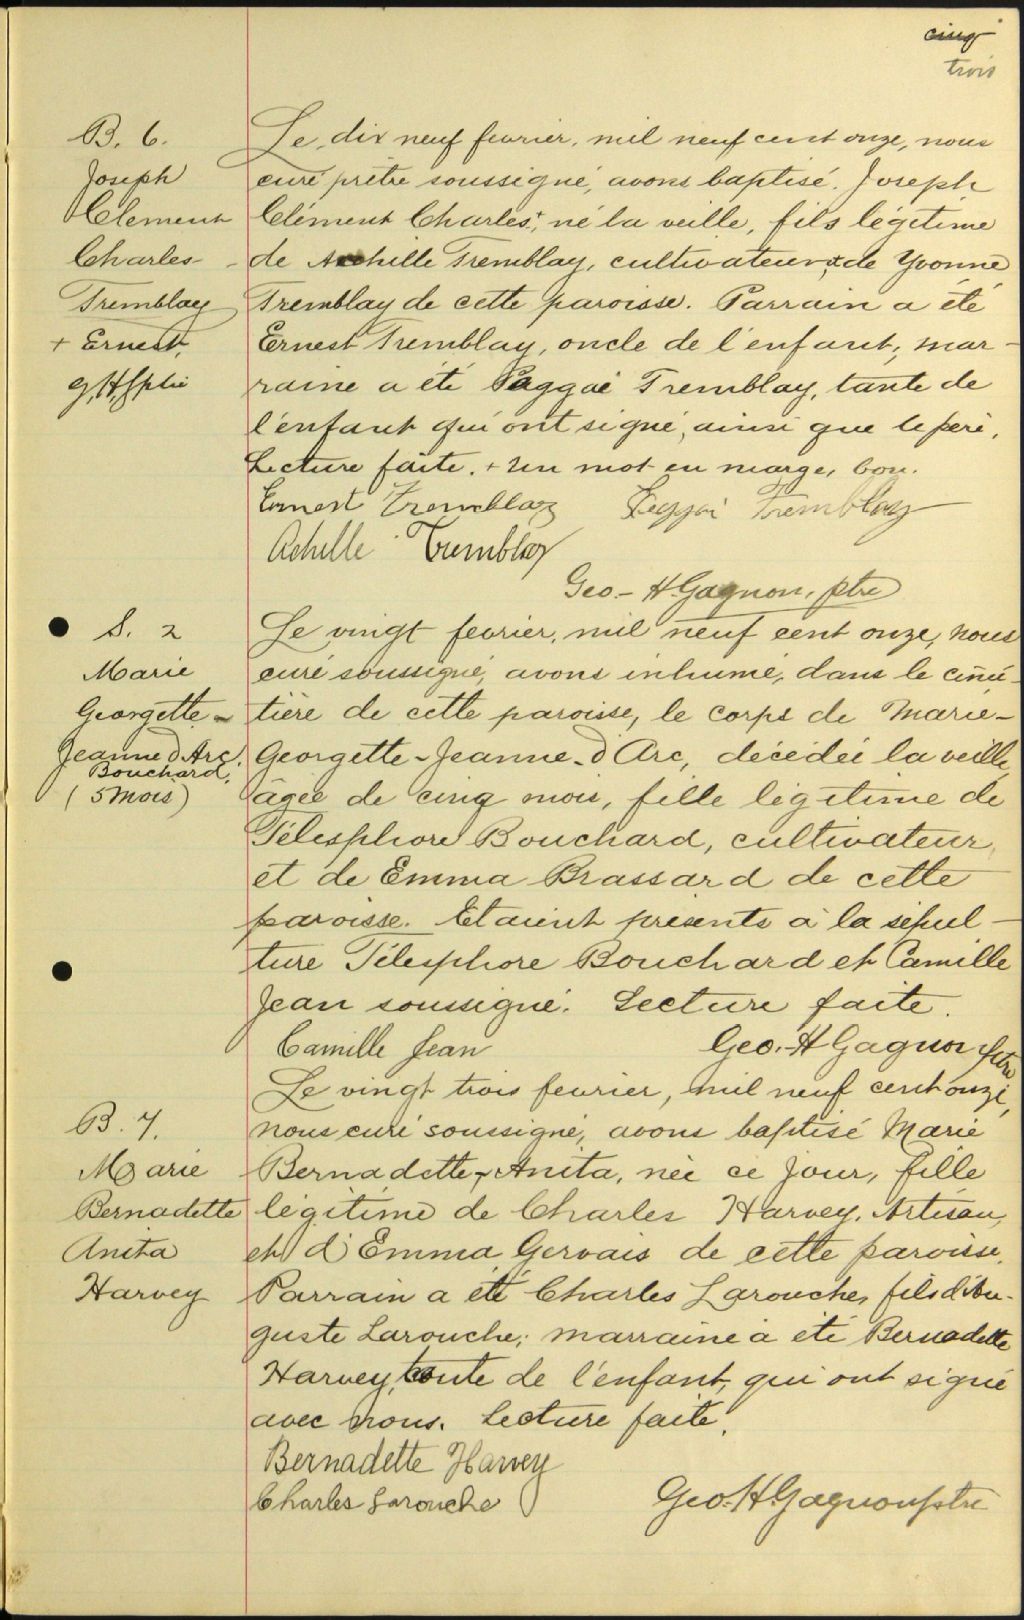 cinq
trois
B. 6.
Joseph
Clement
Charles
Tremblay
+ Ernest,
G.H.G ptre
Le dix neuf fevrier, mil neuf cent onze, nous
curé prêtre soussigné, avons baptisé Joseph
Clément Charles+, né la veille, fils légitime
de Achille Tremblay, cultivateur, & de Yvonne
Tremblay de cette paroisse. Parrain a été
Ernest Tremblay, oncle de l'enfant, mar-
raine a été Peggai Tremblay, tante de
l'enfant qui ont signé, ainsi que le père.
Lecture faite. + Un mot en marge, bon.
Ernest Tremblay Peggai Tremblay
Achille Tremblay
Geo.- H. Gagnon, ptre
S. 2
Marie
Georgette-
Jeanne d'Arc
Bouchard.
(5 Mois)
Le vingt fevrier, mil neuf cent onze, nous
curé soussigné, avons inhumé, dans le cime-
tière de cette paroisse, le corps de Marie-
Georgette-Jeanne-d'Arc, décédée la veille,
âgée de cinq mois, fille légitime de
Télesphore Bouchard, cultivateur,
et de Emma Brassard de cette
paroisse. Etaient présents à la sépul-
ture Télesphore Bouchard et Camille
Jean soussigné. Lecture faite.
Camille Jean Geo.-H Gagnon ptre
B. 7.
Marie
Bernadette
Anita
Harvey
Le vingt trois fevrier, mil neuf cent onze,
nous curé soussigné, avons baptisé Marie
Bernadette-Anita, née ce jour, fille
légitime de Charles Harvey, Artisan,
et d'Emma Gervais de cette paroisse.
Parrain a été Charles Larouche, fils d'Au-
guste Larouche; marraine a été Bernadette
Harvey, tante de l'enfant, qui ont signé
avec nous. Lecture faite.
Bernadette Harvey
Charles Larouche Geo. H. Gagnon ptre